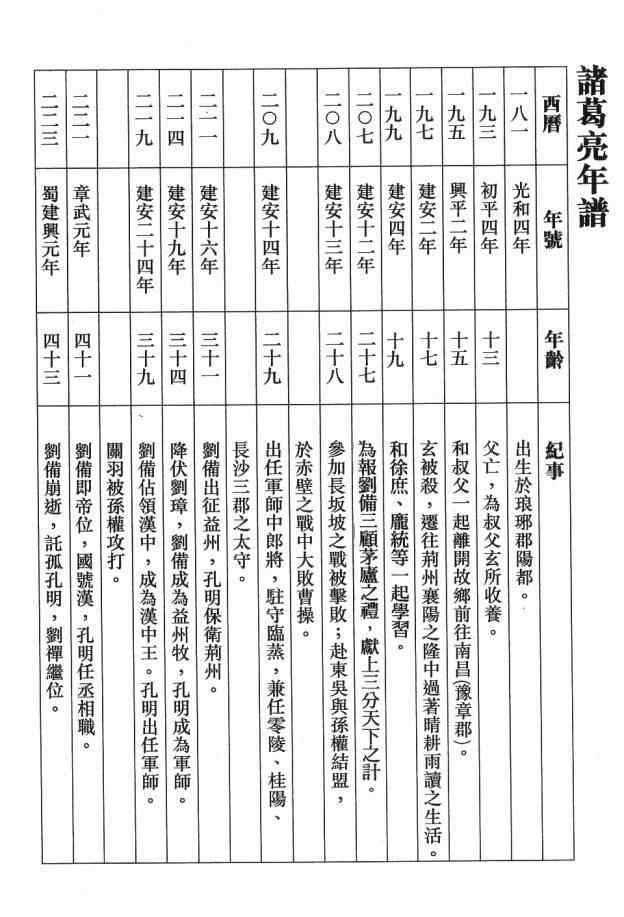 諸葛亮年譜
西曆 年號 年齡 紀事
一八一 光和四年 出生於琅琊郡陽都。
一九三 初平四年 十三 父亡，為叔父玄所收養。
一九五 興平二年 十五 和叔父一起離開故鄉前往南昌（豫章郡）。
一九七 建安二年 十七 玄被殺，遷往荊州襄陽之隆中過著晴耕雨讀之生活。
一九九 建安四年 十九 和徐庶、龐統等一起學習。
二〇七 建安十二年 二十七 為報劉備三顧茅廬之禮，獻上三分天下之計。
二〇八 建安十三年 二十八 參加長坂坡之戰被擊敗；赴東吳與孫權結盟，
於赤壁之戰中大敗曹操。
二〇九 建安十四年 二十九 出任軍師中郎將，駐守臨蒸，兼任零陵、桂陽、
長沙三郡之太守。
二一一 建安十六年 三十一 劉備出征益州，孔明保衛荊州。
二一四 建安十九年 三十四 降伏劉璋，劉備成為益州牧，孔明成為軍師。
二一九 建安二十四年 三十九 劉備佔領漢中，成為漢中王。孔明出任軍師。
關羽被孫權攻打。
二二一 章武元年 四十一 劉備即帝位，國號漢，孔明任丞相職。
二二三 蜀建興元年 四十三 劉備崩逝，託孤孔明，劉禪繼位。